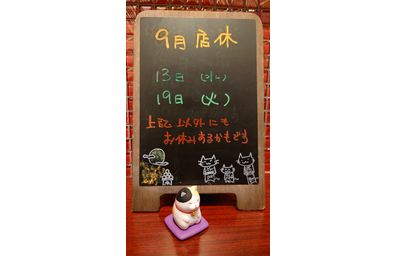 9月店休
13日 (水)
19日 (火)
上記以外にも
お休みあるかもです